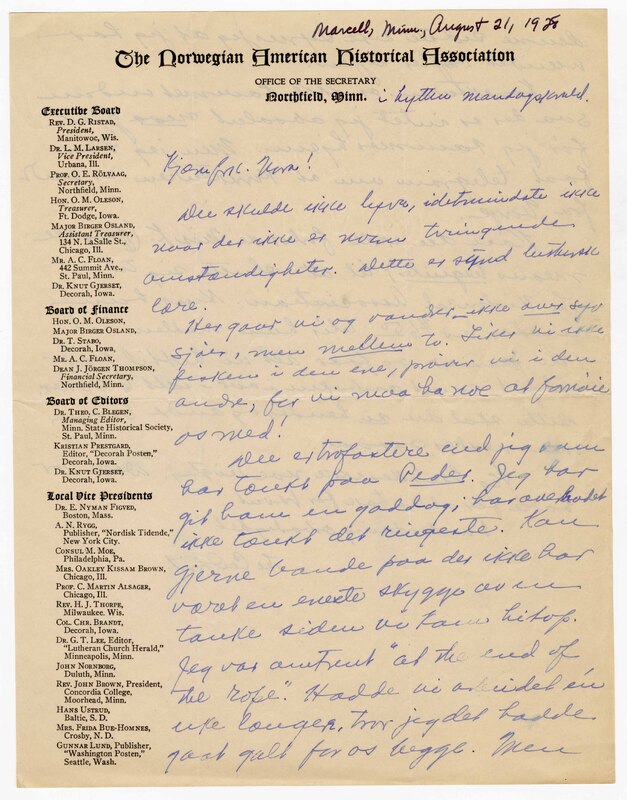 Marcell, Minn, August 21, 1928
The Norwegian American Historical Association
OFFICE OF THE SECRETARY
Northfield, Minn.
i hytten mandagskveld.
Executive Board
REV. D. G. RISTAD,
President,
Manitowoc, Wis.
DR. L. M. LARSEN,
Vice President,
Urbana, Ill.
PROF. O. E. RÖLVAAG,
Secretary,
Northfield, Minn.
HON. O. M. OLESON,
Treasurer,
Ft. Dodge, Iowa.
MAJOR BIRGER OSLAND,
Assistant Treasurer,
134 N. LaSalle St.,
Chicago, Ill.
MR. A. C. FLOAN,
442 Summit Ave.,
St. Paul, Minn.
DR. KNUT GJERSET,
Decorah, Iowa.
Board of Finance
HON. O. M. OLESON,
MAJOR BIRGER OSLAND,
DR. T. STABO,
Decorah, Iowa.
MR. A. C. FLOAN,
DEAN J. JÖRGEN THOMPSON,
Financial Secretary,
Northfield, Minn.
Board of Editors
DR. THEO. C. BLEGEN,
Managing Editor,
Minn. State Historical Society,
St. Paul, Minn.
KRISTIAN PRESTGARD,
Editor, "Decorah Posten,"
Decorah, Iowa.
DR. KNUT GJERSET,
Decorah, Iowa.
Local Vice Presidents
DR. E. NYMAN FIGVED,
Boston, Mass.
A. N. RYGG,
Publisher, "Nordisk Tidende,"
New York City.
CONSUL M. MOE,
Philadelphia, Pa.
MRS. OAKLEY KISSAM BROWN,
Chicago, Ill.
PROF. C. MARTIN ALSAGER,
Chicago, Ill.
REV. H. J. THORPE,
Milwaukee. Wis.
COL. CHR. BRANDT,
Decorah, Iowa.
DR. G. T. LEE, Editor,
"Lutheran Church Herald,"
Minneapolis, Minn.
JOHN NORNBORG,
Duluth, Minn.
REV. JOHN BROWN, President,
Concordia College,
Moorhead, Minn.
HANS USTRUD,
Baltic, S. D.
MRS. FRIDA BUE-HOMNES,
Crosby, N. D.
GUNNAR LUND, Publisher,
"Washington Posten,"
Seattle, Wash.
Kjære frk.
De skulde ikke lyve, idetmindste ikke
naar der ikke er noen tvingende
omstændigheter. Dette er synd luthersk
lære.
Her gaar vi og vandrer ikke over syv
sjøer, men mellem to. Liker vi ikke
fisken i den ene, prøver vi i den
andre, for vi maa ha noe at fornøie
os med!
De er trofastere end jeg som
har tænkt paa Peder. Jeg har
git ham en god dag; har overhodet
ikke tænkt det ringeste. Kan
gjerne bande paa der ikke har
været en eneste skygge av en
tanke siden vi kom hitop.
Jeg var omtrent "at the end of
the rope". Hadde vi arbeidet én
uke længer, tror jeg det hadde
gaat galt for os begge. Men